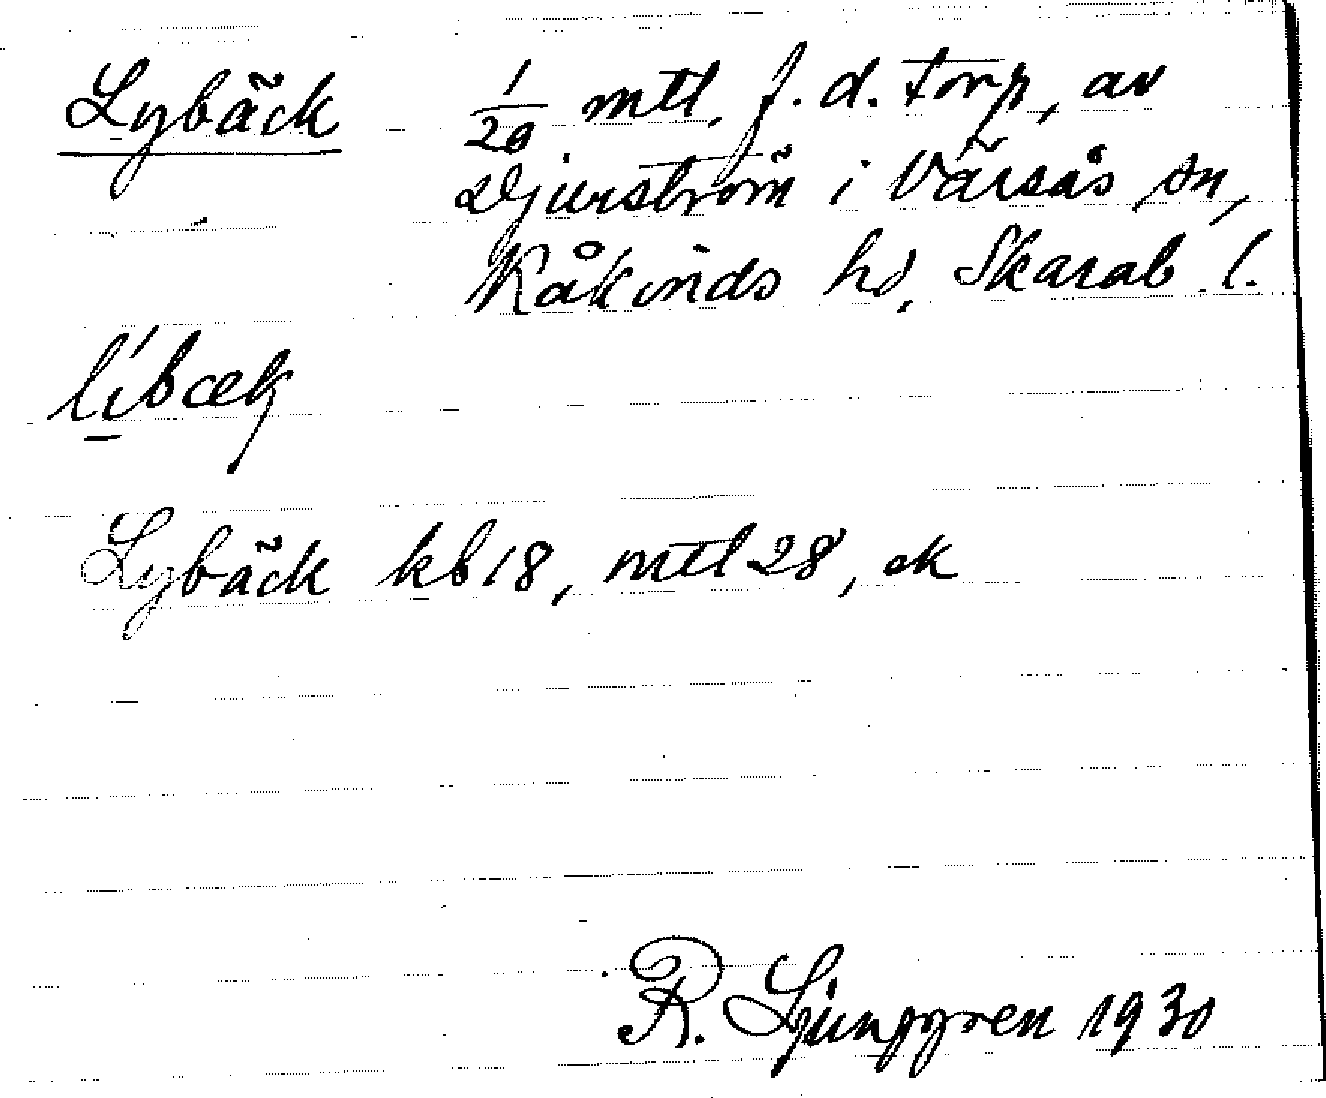 Lybäck 1/20 mtl, f. d. torp, av
Djurström i Värsås sn,
Kåkinds hd, Skarab. l.
li̱´bæk
Lybäck kb 18, mtl 28, ek
R. Ljunggren 1930